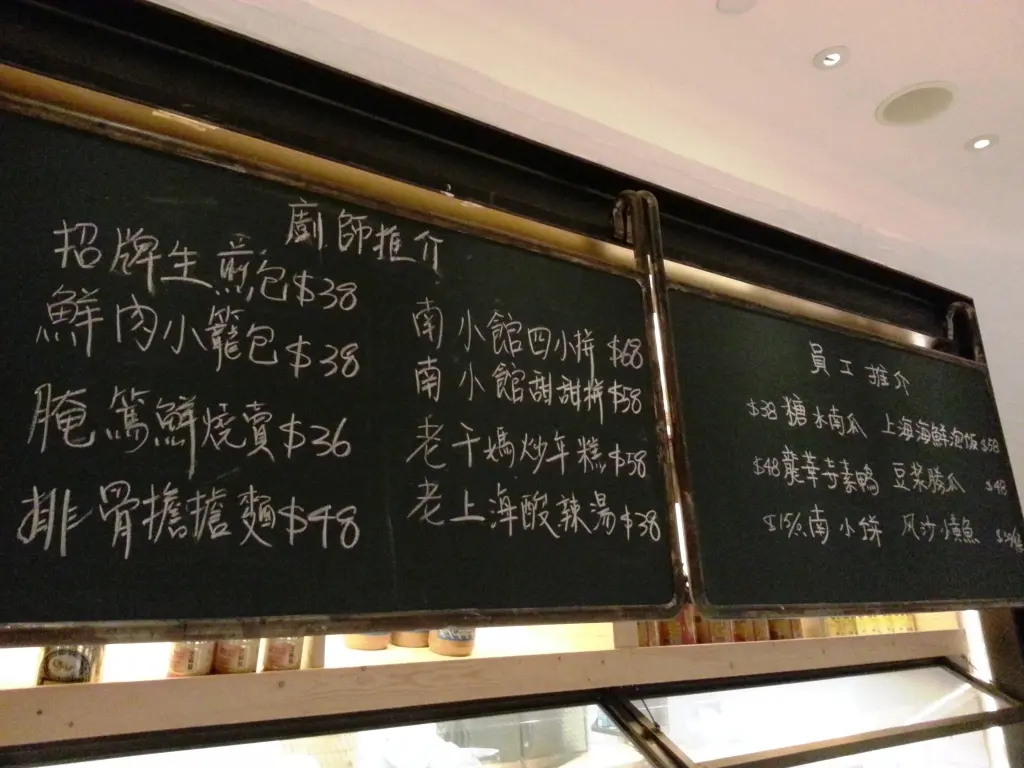 廚師推介
招牌生煎包$38
鮮肉小籠包$38
腌篤鮮燒賣$36
排骨擔擔麵$48
南小館四小拼$68
南小館甜甜拼$58
老干媽炒年糕$58
老上海酸辣湯$38
員工推介
$38糖水南瓜 上海海鮮泡饭$58
$48龍華寺素鴨 豆浆勝瓜 $48
南小餅 风沙小黄魚